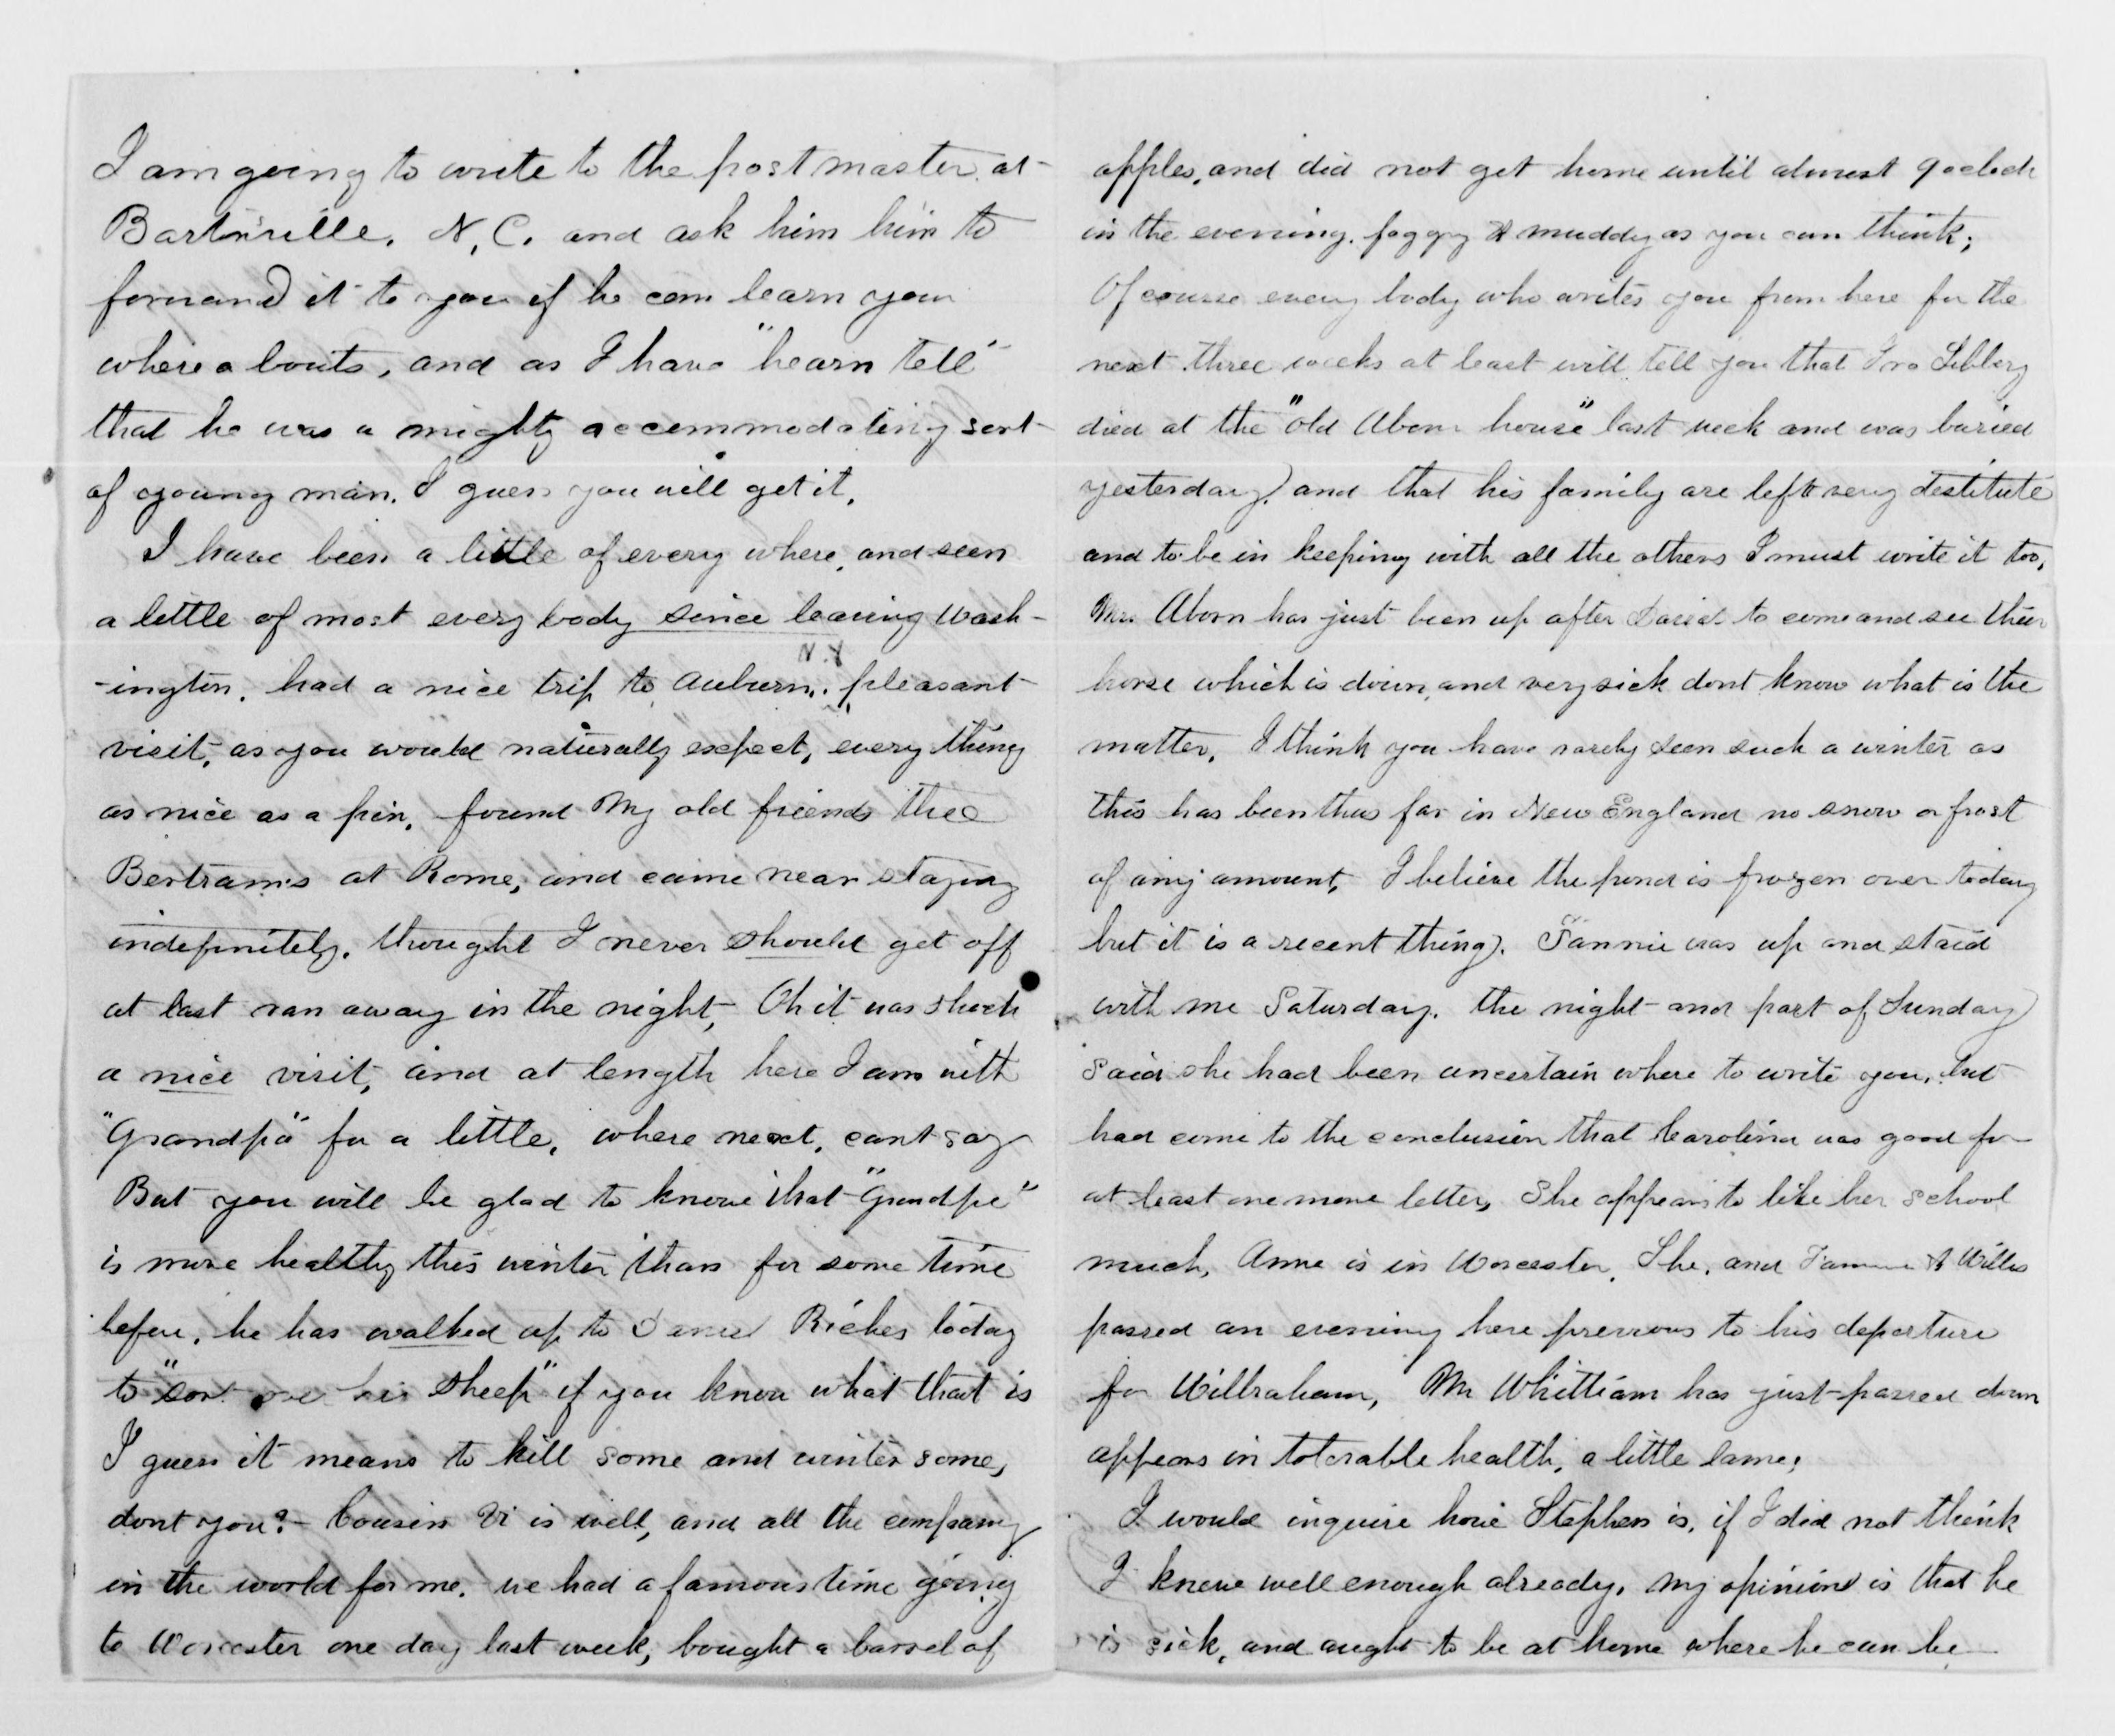 I am going to write to the postmaster at
Bartonville, N.C. and ask him him to
forward it to you if he can learn your
where a bouts, and as I have "hearn tell"
that he was a mighty accommodating sort
of young man. I guess you will get it.
I have been a little of every where, and seen
a little of most every body since leaving Wash-
-ington, had a nice trip to Auburn, N.Y. pleasant
visit, as you would naturally expect, every thing
as nice as a pin, found my old friends the
Bertrams at Rome, and came near staying
indefinitely. thought I never should get off
at last ran away in the night, Oh it was such
a nice visit, and at length here I am with
"Grandpa" for a little, where next, cant say
But you will be glad to know that "Grandpa"
is more healthy this winter than for some time
before, he has walked up to Riches today
to "sort over his sheep" if you know what that is
I guess it means to kill some and winter some,
dont you? - Cousin Vi is well, and all the company
in the world for me. we had a famous time going
to Worcester one day last week, bought a barrel of
apples, and did not get home until almost 9 oclock
in the evening. foggy & muddy as you can think;
Of course every body who writes you from here for the
next three weeks at least will tell you that Ira
died at the "old Aborn house" last week and was buried
yesterday, and that his family are left very destitute
and to be in keeping with all the others I must write it too,
Mrs Aborn has just been up after David to come and see their
horse which is down, and very sick dont know what is the
matter, I think you have rarely seen such a winter as
this has been thus far in New England no snow or frost
of any amount, I believe the pond is frozen over today
but it is a recent thing. Fannie was up and staid
with me Saturday. the night and part of Sunday
said she had been uncertain where to write you, but
had come to the conclusion that Carolina was good for
at least one more letter, She appears to like her school
much, Anne is in Worcester, She, and Fannie & Willis
passed an evening here previous to his departure
for Wilbraham, Mr Whittiam has just passed down
appears in tolerable health, a little lame,
I would inquire how Stephen is, if I did not think
I knew well enough already, my opinion is that he
is sick, and aught to be at home where he can be